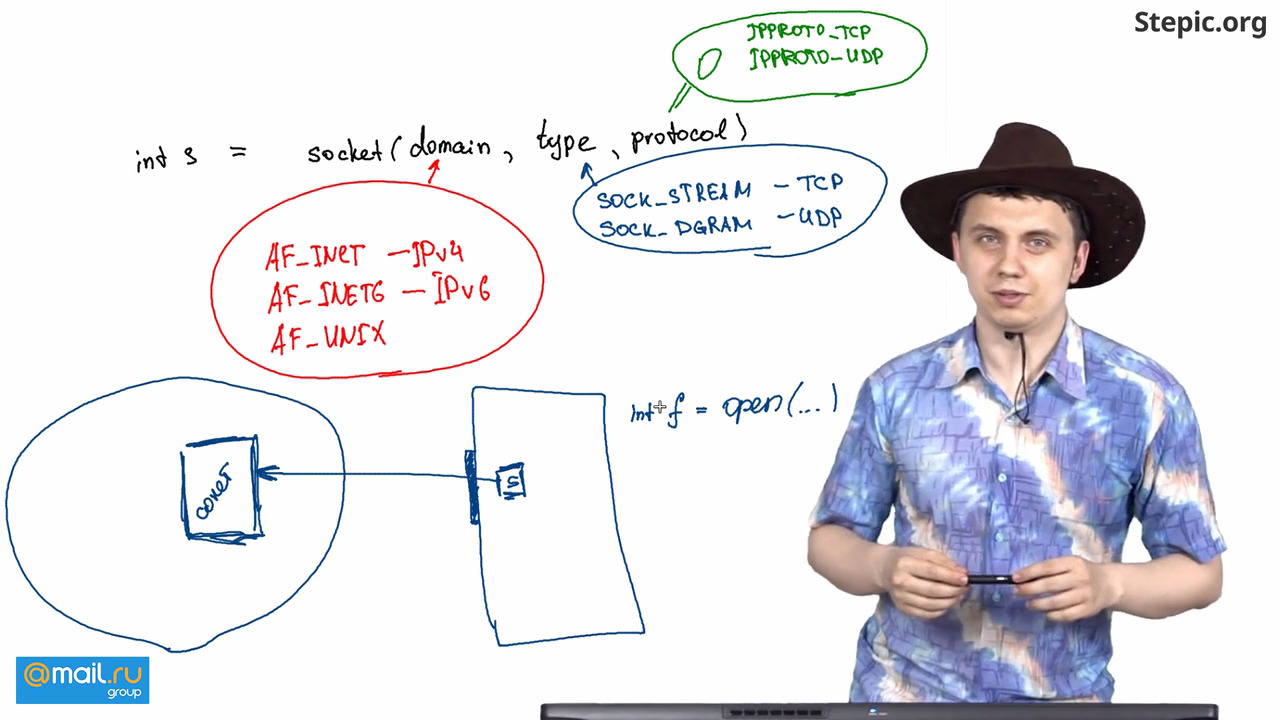 Stepic.org
IPPROTO_TCP
0 IPPROTO_UDP
int s = socket(domain, type, protocol)
SOCK_STREAM - TCP
SOCK_DGRAM - UDP
AF_INET - IPv4
AF_INET6 - IPv6
AF_UNIX
int f = open(...)
сокет
s
@mail.ru
group